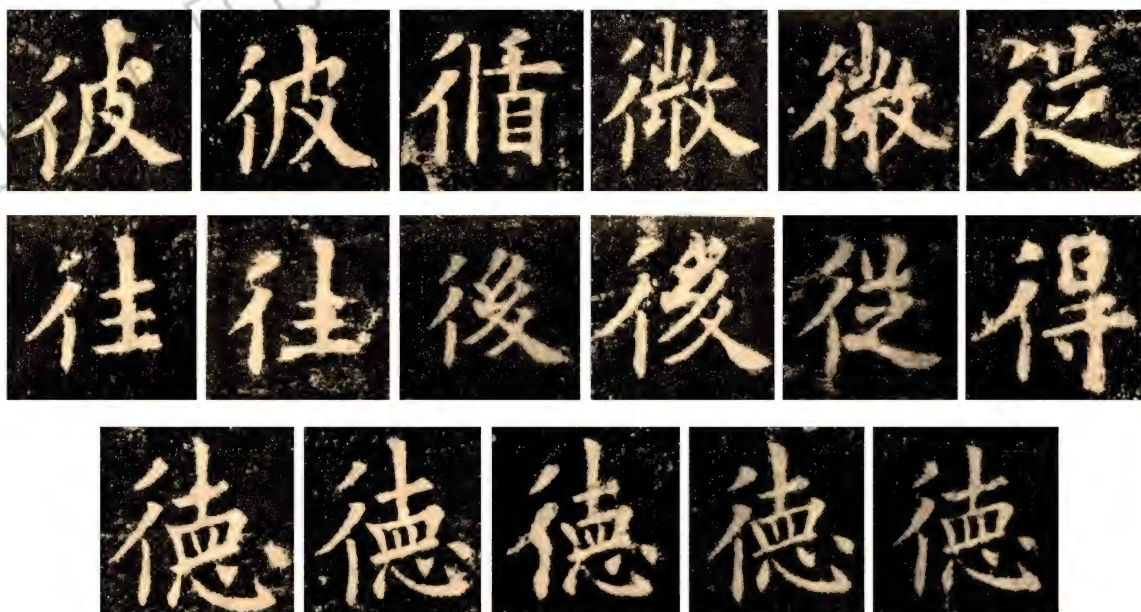 彼彼循微微從
往往後後從得
德德德德德